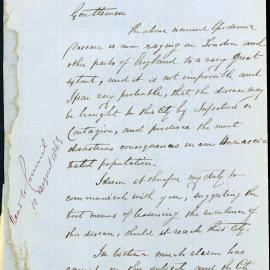 Gentlemen
The above named Epidemic
Disease is now raging in London and
other parts of England to a very great
extent, and it is not impossible and
I fear very probable, that the disease may
be brought to this City by Infection or
Contagion, and produce the most
disastrous consequences in our Unvacci=
nated population.
I deem it therefore my duty to
communicate with you, suggesting the
best means of lessening the virulence of
this disease, should it reach this City.
In Victoria much alarm has
on this subject, and the City
Council
10 August 1863